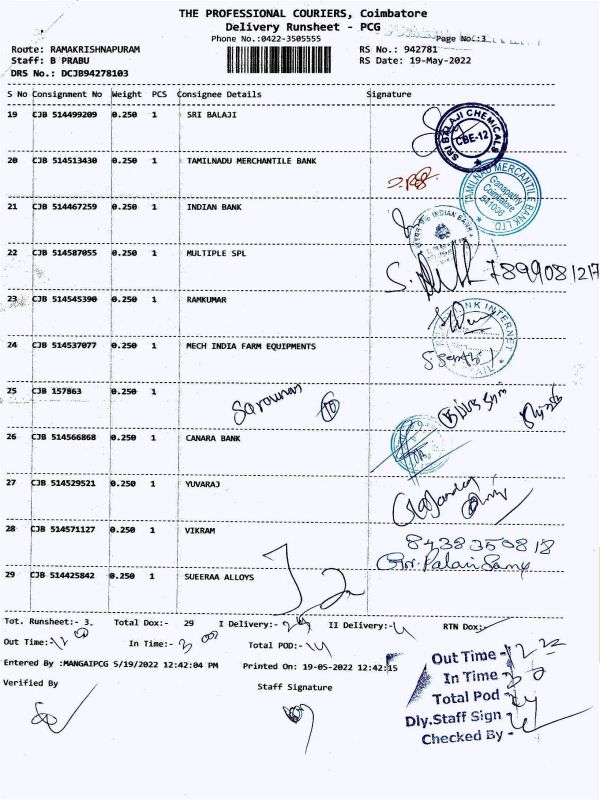 THE PROFESSIONAL COURIERS, Coimbatore
Delivery Runsheet - PCG
Phone No.:0422-3505555
Page No.:3
Route: RAMAKRISHNAPURAM
RS No.: 942781
Staff: B PRABU
RS Date: 19-May-2022
DRS No.: DCJB94278103
S No Consignment No Weight PCS Consignee Details Signature
19 CJB 514499209 0.250 1 SRI BALAJI
SRI BALAJI CHEMICALS
CBE-12
20 CJB 514513430 0.250 1 TAMILNADU MERCHANTILE BANK
TAMILNAD MERCANTILE BANK LTD
Ganapathy
Coimbatore
641006
21 CJB 514467259 0.250 1 INDIAN BANK
INDIAN BANK
22 CJB 514587055 0.250 1 MULTIPLE SPL
7899081217
23 CJB 514545390 0.250 1 RAMKUMAR
24 CJB 514537077 0.250 1 MECH INDIA FARM EQUIPMENTS
25 CJB 157863 0.250 1
Saravanan
26 CJB 514566868 0.250 1 CANARA BANK
27 CJB 514529521 0.250 1 YUVARAJ
28 CJB 514571127 0.250 1 VIKRAM
8438350818
29 CJB 514425842 0.250 1 SUEERAA ALLOYS
Tot. Runsheet:- 3. Total Dox:- 29 I Delivery:- II Delivery:- RTN Dox:-
Out Time:- In Time:- Total POD:-
Entered By :MANGAIPCG 5/19/2022 12:42:04 PM Printed On: 19-05-2022 12:42:15
Verified By Staff Signature
Out Time -
In Time -
Total Pod -
Dly.Staff Sign -
Checked By -